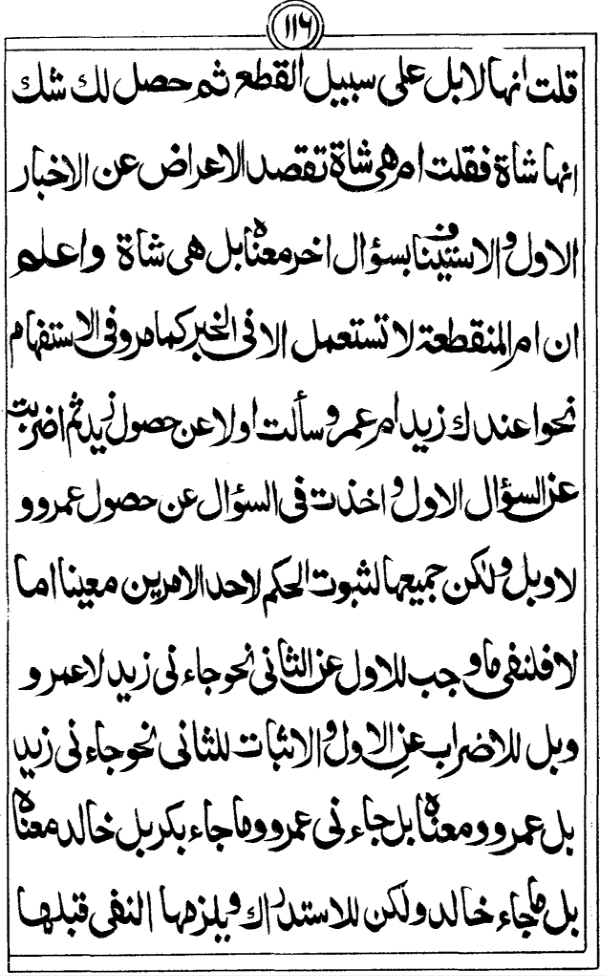 ١١٦
قلت انها لابل على سبيل القطع ثم حصل لك شك
انها شاة فقلت ام هى شاة تقصد الاعراض عن الاخبار
الاول والاستيناف بسؤال اخر معناه بل هى شاة واعلم
ان ام المنقطعة لا تستعمل الا فى الخبر كما مر وفى الاستفهام
نحو اعندك زيد ام عمرو سألت اولا عن حصول زيد ثم اضربت
عن السؤال الاول واخذت فى السؤال عن حصول عمرو و
لا وبل ولكن جميعها لثبوت الحكم لاحد الامرين معينا اما
لا فلنفى ما وجب للاول عن الثانى نحو جاءنى زيد لا عمرو
وبل للاضراب عن الاول والاثبات للثانى نحو جاءنى زيد
بل عمرو ومعناه بل جاءنى عمرو وما جاء بكر بل خالد معناه
بل ما جاء خالد ولكن للاستدراك ويلزمها النفى قبلها